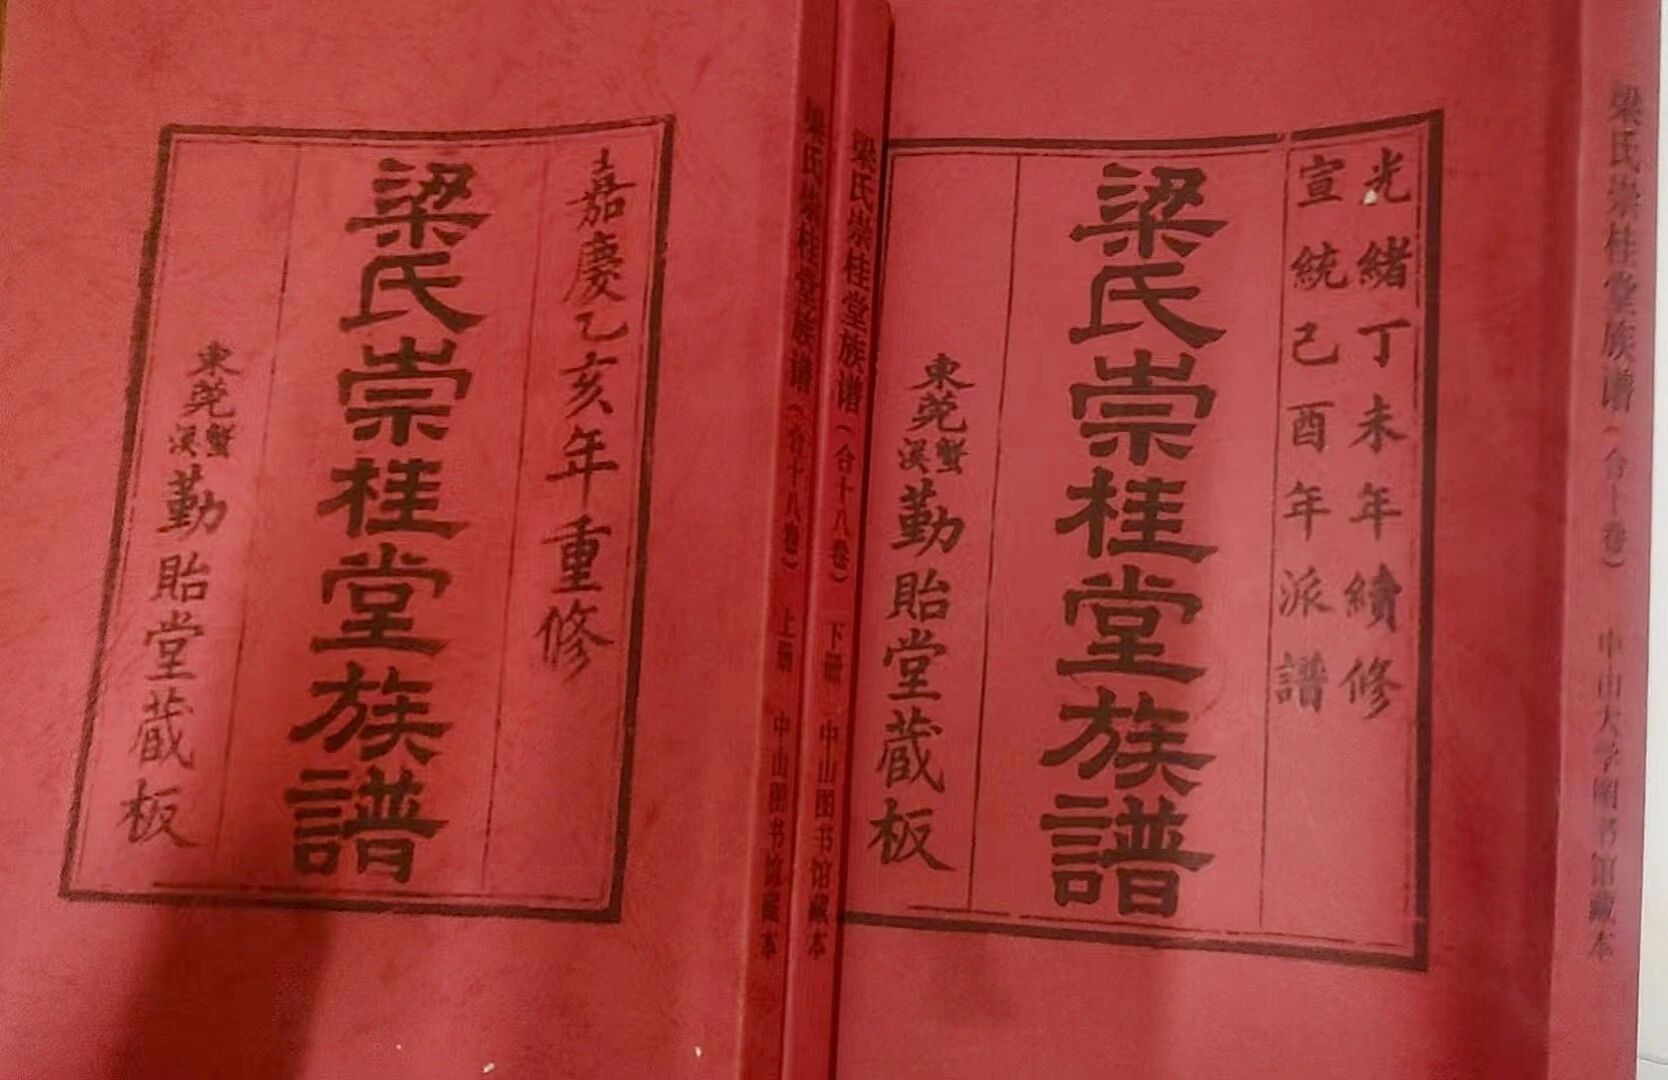 嘉慶乙亥年重修
梁氏崇桂堂族譜
東莞
蟹
勤貽堂藏板
梁氏崇桂堂族谱（合十八卷） 上册 中山图书馆藏本
梁氏崇桂堂族谱（合十八卷） 下册 中山图书馆藏本
光緒丁未年續修
宣統己酉年派譜
梁氏崇桂堂族譜
東莞
蟹
勤貽堂藏板
梁氏崇桂堂族谱 中山大学图书馆藏本